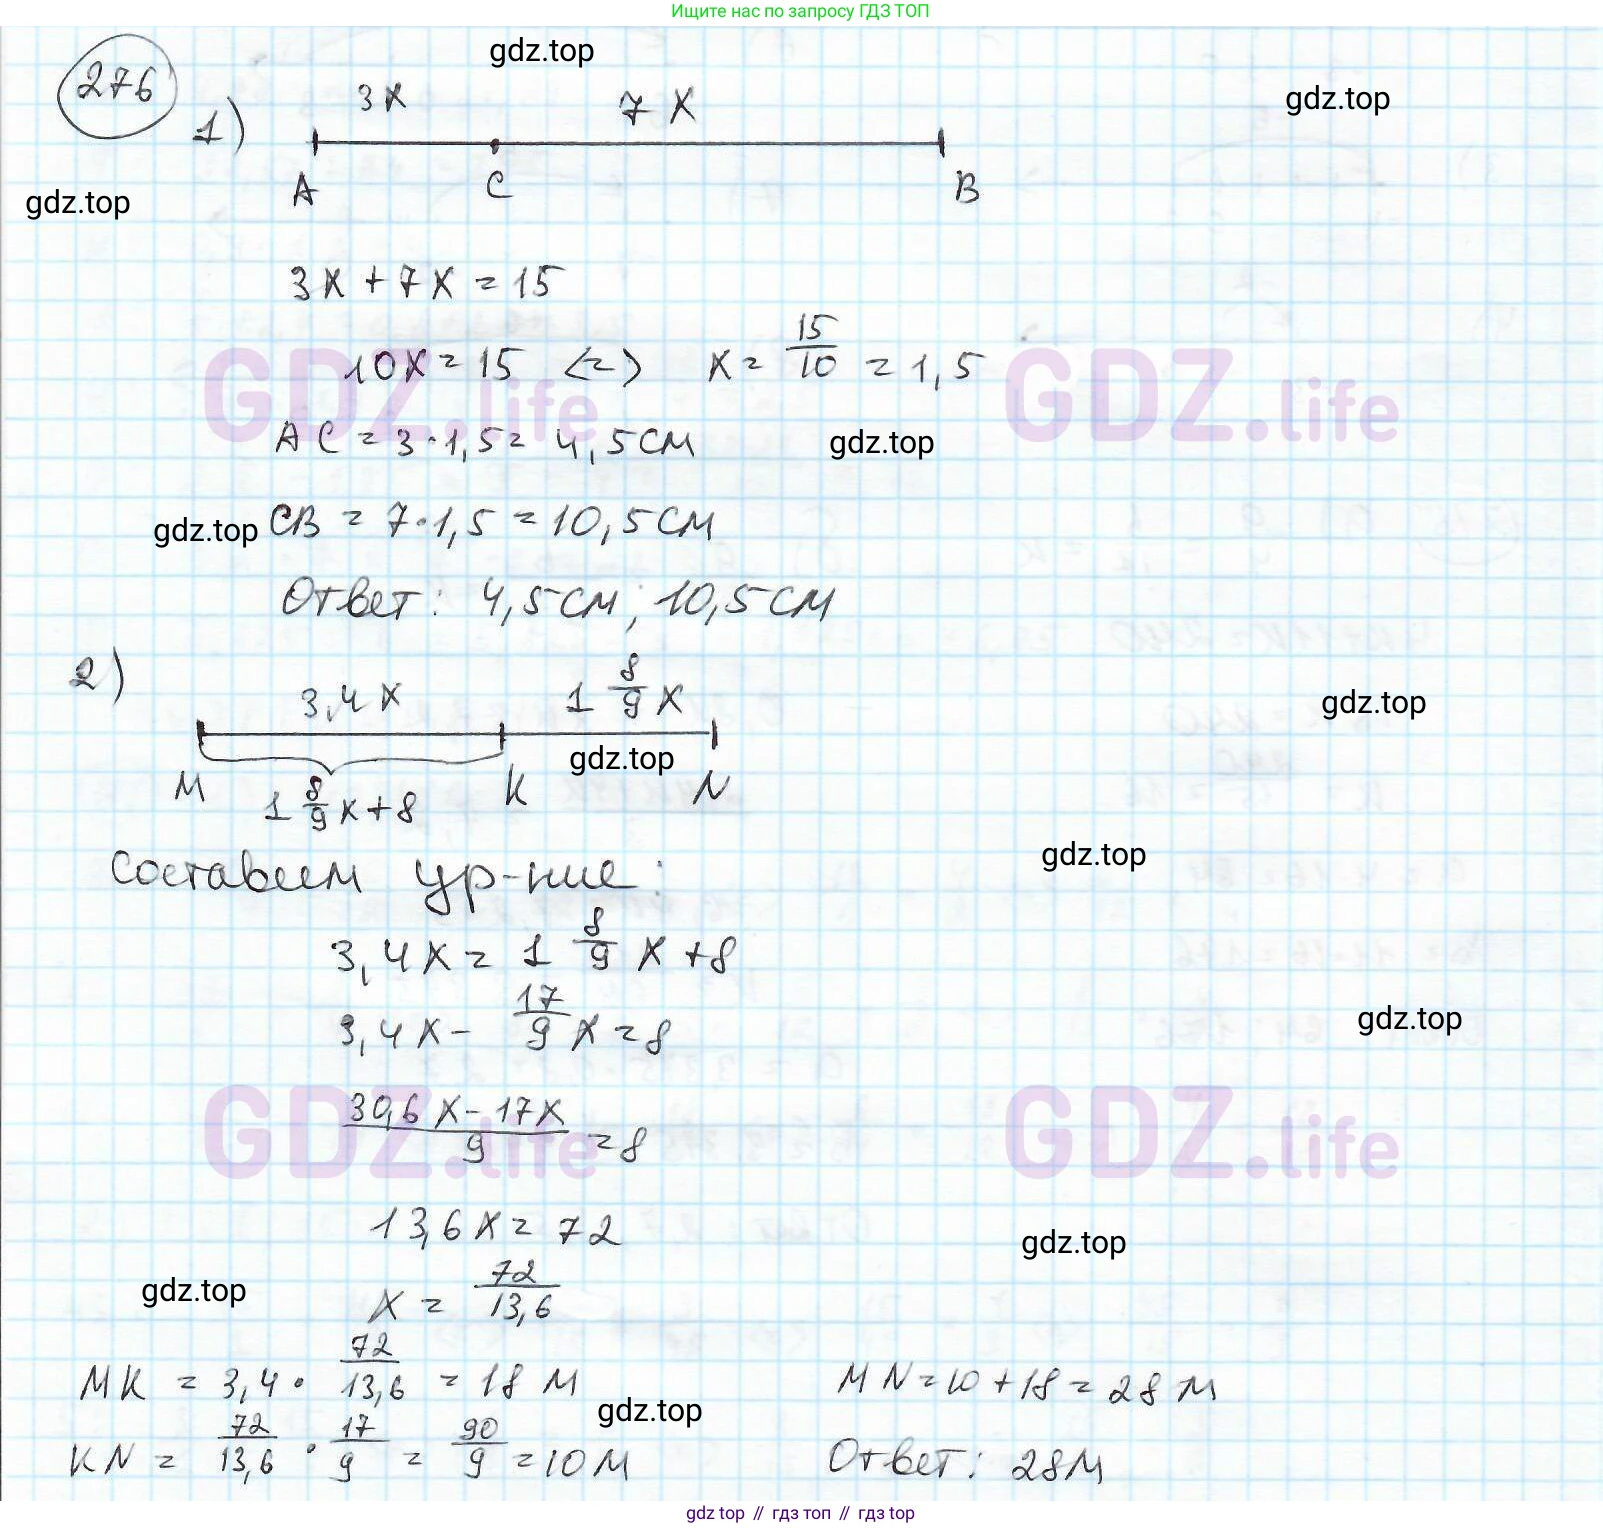 Ищите нас по запросу ГДЗ ТОП
gdz.top
276
1)
3x 7x
gdz.top
A C B
gdz.top
3x + 7x = 15
10x = 15 <=> x = 15/10 = 1,5
GDZ.life GDZ.life
AC = 3·1,5 = 4,5 см
gdz.top
gdz.top
CB = 7·1,5 = 10,5 см
Ответ: 4,5 см; 10,5 см
2)
3,4x 1 8/9 x
gdz.top
gdz.top
M K N
1 8/9 x + 8
gdz.top
Составим ур-ние:
3,4x = 1 8/9 x + 8
3,4x - 17/9 x = 8
gdz.top
(30,6x - 17x)/9 = 8
GDZ.life GDZ.life
13,6x = 72
gdz.top
gdz.top
x = 72/13,6
MK = 3,4 · 72/13,6 = 18 м
MN = 10 + 18 = 28 м
gdz.top
KN = 72/13,6 · 17/9 = 90/9 = 10 м
Ответ: 28 м
gdz top // гдз топ // гдз top